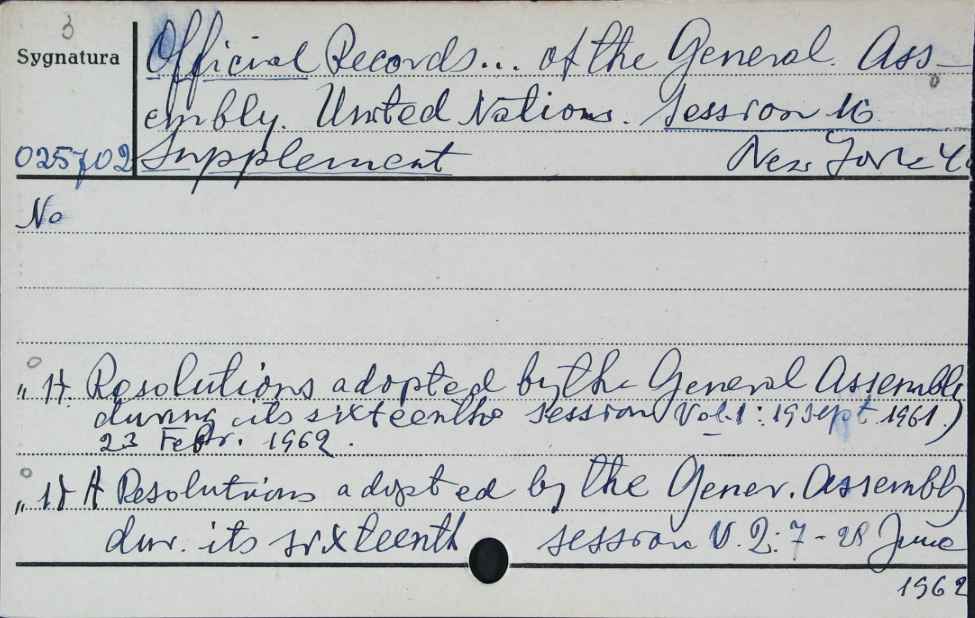 3
Sygnatura
Official Records... of the General Ass-
embly. United Nations. Session 16
025702 Supplement New York Y.
No
" 17. Resolutions adopted by the General Assembly
during its sixteenth session Vol.1: 19 Sept 1961.)
23 Febr. 1962.
" 17 A Resolutions adopted by the Gener. Assembly
dur. its sixteenth session V. 2: 7 - 28 June
1962